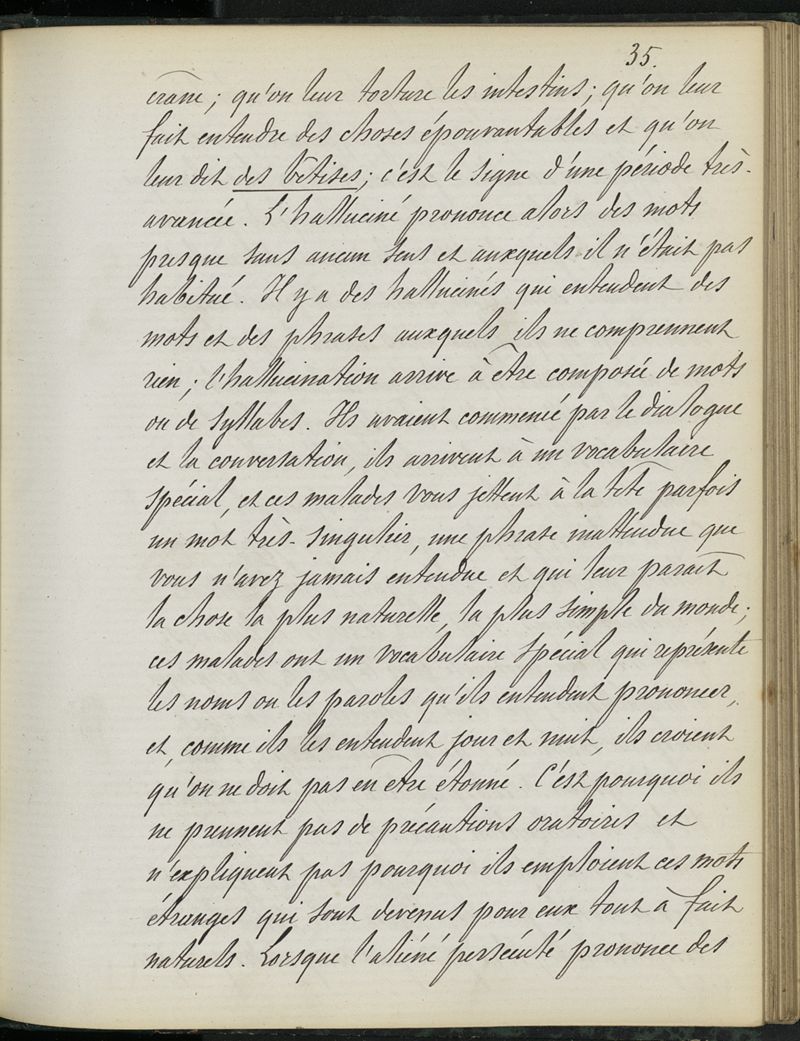 35.
crâne ; qu'on leur torture les intestins ; qu'on leur
fait entendre des choses épouvantables et qu'on
leur dit des bêtises ; c'est le signe d'une période très-
avancée. L'halluciné prononce alors des mots
presque sans aucun sens et auxquels il n'était pas
habitué. Il y a des hallucinés qui entendent des
mots et des phrases auxquels ils ne comprennent
rien ; l'hallucination arrive à être composée de mots
ou de syllabes. Ils avaient commencé par le dialogue
et la conversation, ils arrivent à un vocabulaire
spécial, et ces malades vous jettent à la tête parfois
un mot très-singulier, une phrase inattendue que
vous n'avez jamais entendue et qui leur paraît
la chose la plus naturelle, la plus simple du monde ;
ces malades ont un vocabulaire spécial qui représente
les noms ou les paroles qu'ils entendent prononcer,
et, comme ils les entendent jour et nuit, ils croient
qu'on ne doit pas en être étonné. C'est pourquoi ils
ne prennent pas de précautions oratoires et
n'expliquent pas pourquoi ils emploient ces mots
étranges qui sont devenus pour eux tout à fait
naturels. Lorsque l'aliéné persécuté prononce des